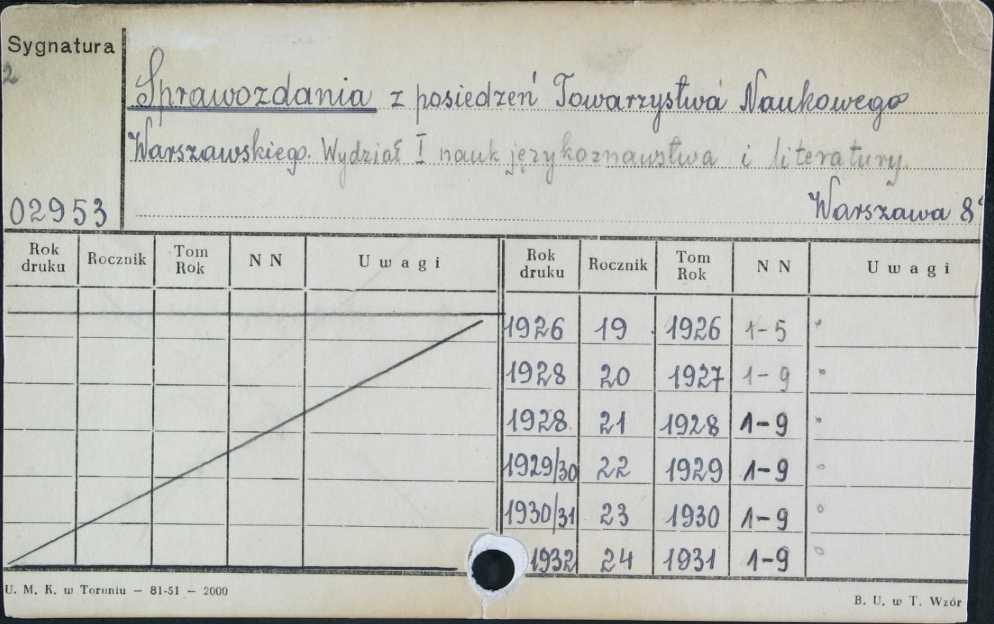 Sygnatura
2
Sprawozdania z posiedzeń Towarzystwa Naukowego
Warszawskiego. Wydział I nauk językoznawstwa i literatury.
02953
Warszawa 8°
Rok druku Rocznik Tom Rok N N Uwagi Rok druku Rocznik Tom Rok N N Uwagi
1926 19 1926 1-5
1928 20 1927 1-9
1928 21 1928 1-9
1929/30 22 1929 1-9
1930/31 23 1930 1-9
1932 24 1931 1-9
U. M. K. w Toruniu — 81-51 — 2000
B. U. w T. Wzór